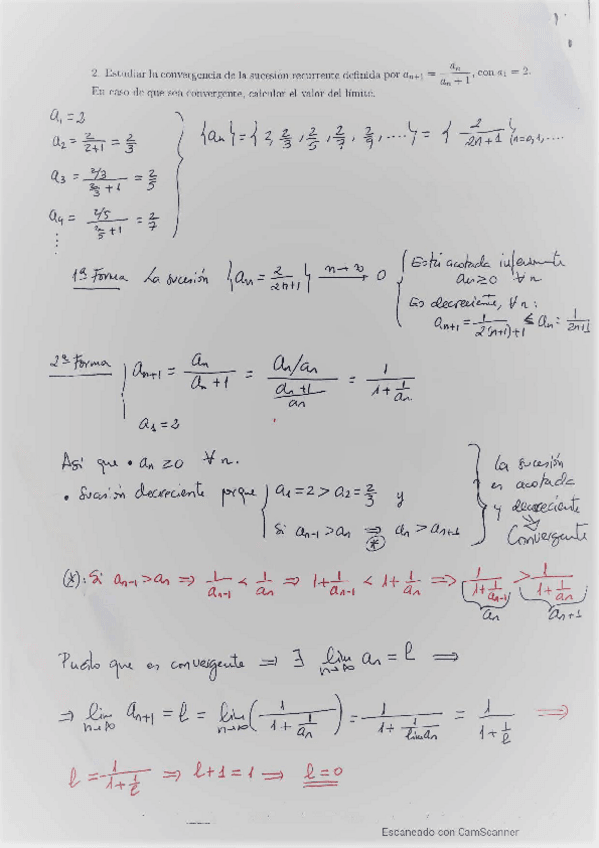 2. Estudiar la convergencia de la sucesión recurrente definida por aₙ₊₁ = aₙ/(aₙ + 1), con a₁ = 2.
En caso de que sea convergente, calcular el valor del límite.
a₁ = 2
a₂ = 2/(2+1) = 2/3
{aₙ} = {2, 2/3, 2/5, 2/7, 2/9, ....} = { 2/(2n+1) }ₙ₌₀,₁,....
a₃ = (2/3)/(2/3 + 1) = 2/5
a₄ = (2/5)/(2/5 + 1) = 2/7
⋮
1ª Forma La sucesión {aₙ = 2/(2n+1)} n→∞ ⟶ 0
Está acotada inferiormente
aₙ ≥ 0 ∀n
Es decreciente, ∀n:
aₙ₊₁ = 1/(2(n+1)+1) ≤ aₙ = 1/(2n+1)
2ª Forma aₙ₊₁ = aₙ/(aₙ + 1) = (aₙ/aₙ)/((aₙ+1)/aₙ) = 1/(1 + 1/aₙ)
a₁ = 2
Así que • aₙ ≥ 0 ∀n.
• Sucesión decreciente porque a₁ = 2 > a₂ = 2/3 y
Si aₙ₋₁ > aₙ ⟹(*) aₙ > aₙ₊₁
La sucesión
es acotada
y decreciente
⇓
Convergente
(*): Si aₙ₋₁ > aₙ ⟹ 1/aₙ₋₁ < 1/aₙ ⟹ 1 + 1/aₙ₋₁ < 1 + 1/aₙ ⟹ 1/(1 + 1/aₙ₋₁) > 1/(1 + 1/aₙ)
aₙ aₙ₊₁
Puesto que es convergente ⟹ ∃ lim n→∞ aₙ = l ⟹
⟹ lim n→∞ aₙ₊₁ = l = lim n→∞ (1/(1 + 1/aₙ)) = 1/(1 + 1/lim aₙ) = 1/(1 + 1/l) ⟹
l = 1/(1 + 1/l) ⟹ l + 1 = 1 ⟹ l = 0
Escaneado con CamScanner